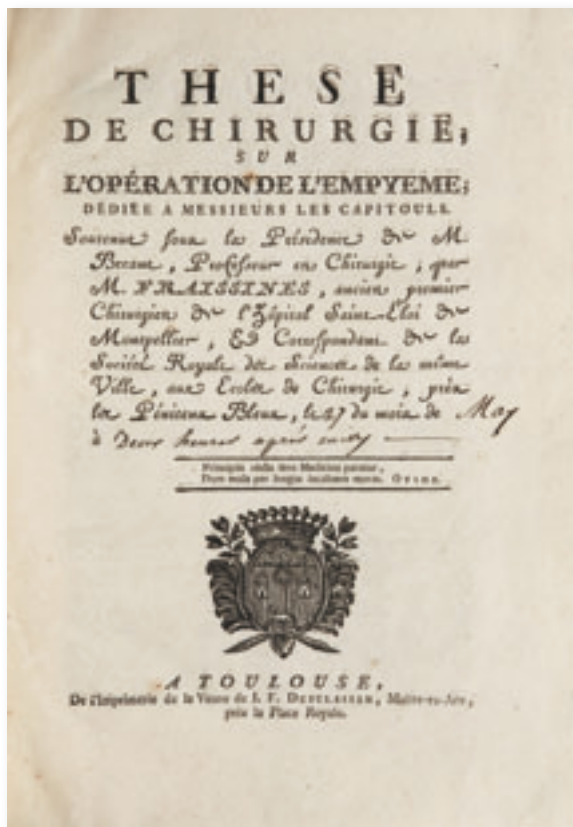 THESE
DE CHIRURGIE,
SUR
L'OPÉRATION DE L'EMPYEME;
DÉDIÉE A MESSIEURS LES CAPITOULS.
Soutenue sous la Présidence de M.
Becane, Professeur en Chirurgie, par
M. FRAISSINES, ancien premier
Chirurgien de l'Hôpital Saint-Eloi de
Montpellier, & Correspondant de la
Société Royale des Sciences de la même
Ville, aux Ecoles de Chirurgie, près
les Pénitens Bleus, le 27 du mois de May
à Deux heures après midy
Principiis obsta sero Medicina paratur,
Cum mala per longas invaluere moras. OVIDE.
A TOULOUSE,
De l'Imprimerie de la Veuve de J. F. DESCLASSAN, Maître-ès-Arts,
près la Place Royale.